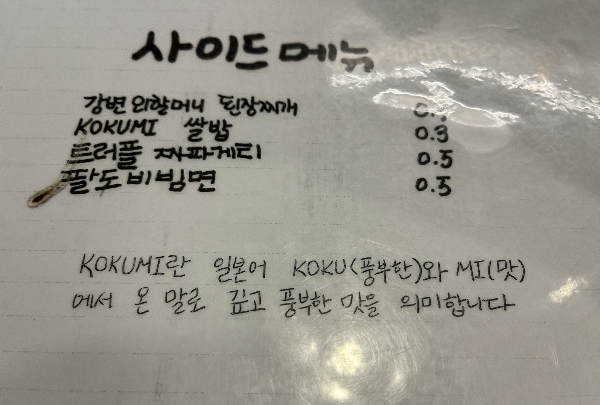 사이드 메뉴
강변 외할머니 된장찌개
KOKUMI 쌀밥 0.3
트러플 짜파게티 0.5
팔도비빔면 0.5
KOKUMI란 일본어 KOKU(풍부한)와 MI(맛)
에서 온 말로 깊고 풍부한 맛을 의미합니다